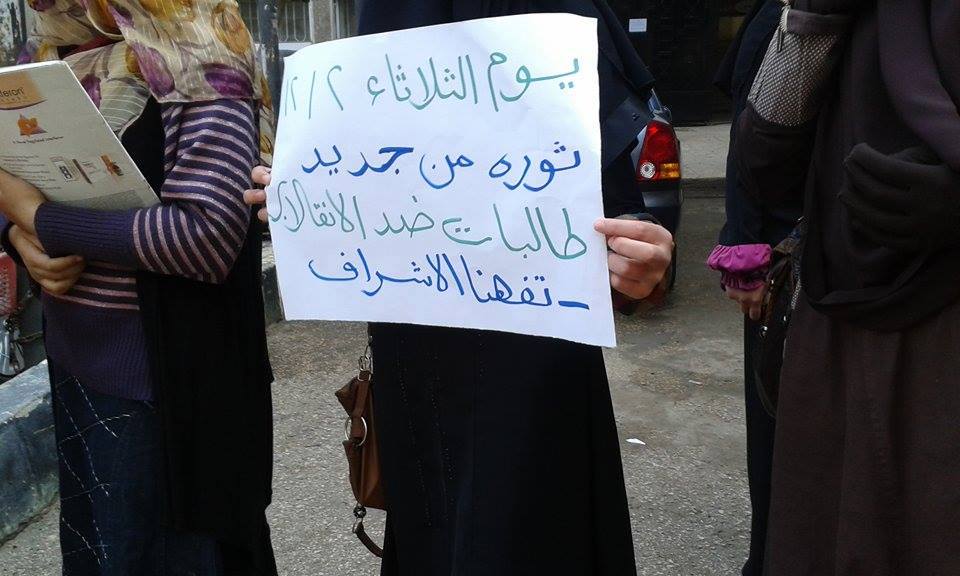 يوم الثلاثاء ١٢/٢
ثوره من جديد
طالبات ضد الانقلاب
- تفهنا الاشراف